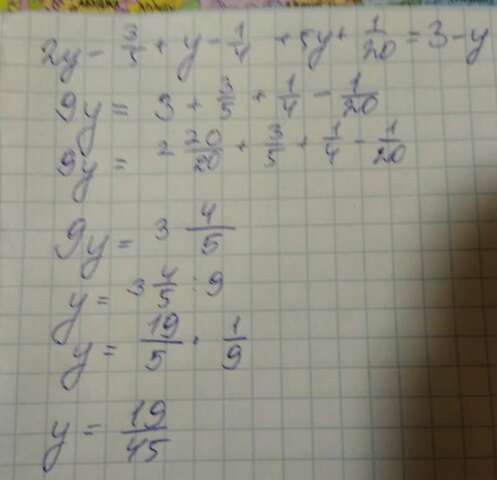 2y - 3/5 + y - 1/4 + 5y + 1/20 = 3 - y
9y = 3 + 3/5 + 1/4 - 1/20
9y = 2 20/20 + 3/5 + 1/4 - 1/20
9y = 3 4/5
y = 3 4/5 : 9
y = 19/5 · 1/9
y = 19/45